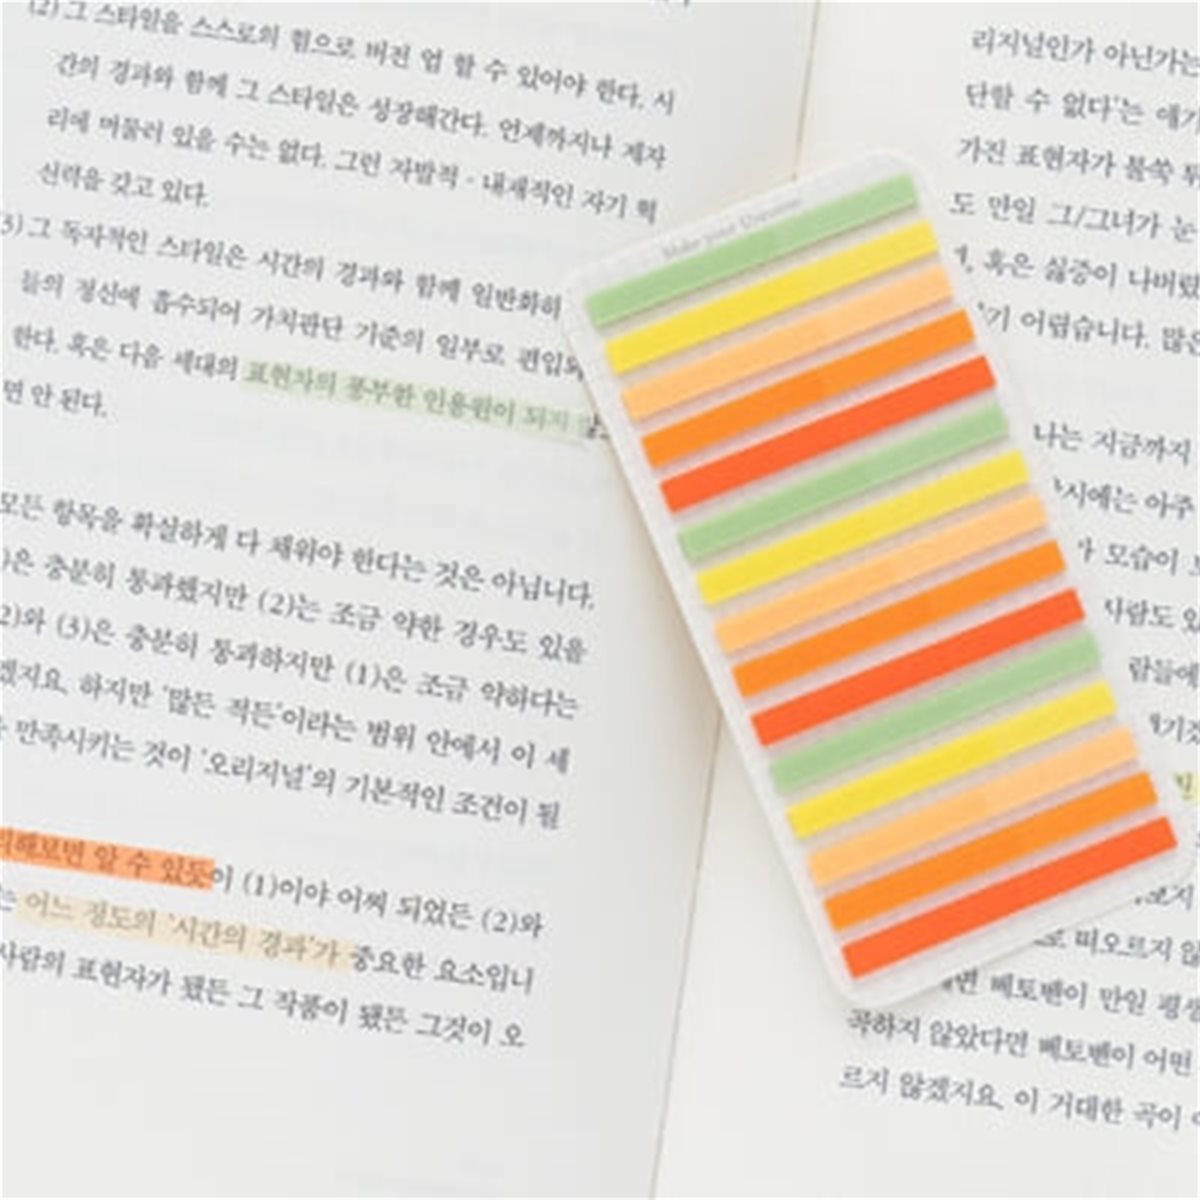 (2) 그 스타일을 스스로의 힘으로 버전 업 할 수 있어야 한다. 시
간의 경과와 함께 그 스타일은 성장해간다. 언제까지나 제자
리에 머물러 있을 수는 없다. 그런 자발적·내재적인 자기 혁
신력을 갖고 있다.
3) 그 독자적인 스타일은 시간의 경과와 함께 일반화하
들의 정신에 흡수되어 가치판단 기준의 일부로 편입되
한다. 혹은 다음 세대의 표현자의 풍부한 인용원이 되지
면 안 된다.
모든 항목을 확실하게 다 채워야 한다는 것은 아닙니다.
)은 충분히 통과했지만 (2)는 조금 약한 경우도 있을
2)와 (3)은 충분히 통과하지만 (1)은 조금 약하다는
겠지요. 하지만 '많든 적든'이라는 범위 안에서 이 세
만족시키는 것이 '오리지널'의 기본적인 조건이 될
리해보면 알 수 있듯이 (1)이야 어찌 되었든 (2)와
는 어느 정도의 '시간의 경과'가 중요한 요소입니
사람의 표현자가 됐든 그 작품이 됐든 그것이 오
Make your Universe
리지널인가 아닌가는
단할 수 없다'는 얘기
가진 표현자가 불쑥
도 만일 그/그녀가 눈
혹은 싫증이 나버렸
기 어렵습니다. 많은
나는 지금까지
시에는 아주
모습이
사람도 있
람들에
떠오르지 않
면 베토벤이 만일 평생
곡하지 않았다면 베토벤이 어떤
르지 않겠지요. 이 거대한 곡이